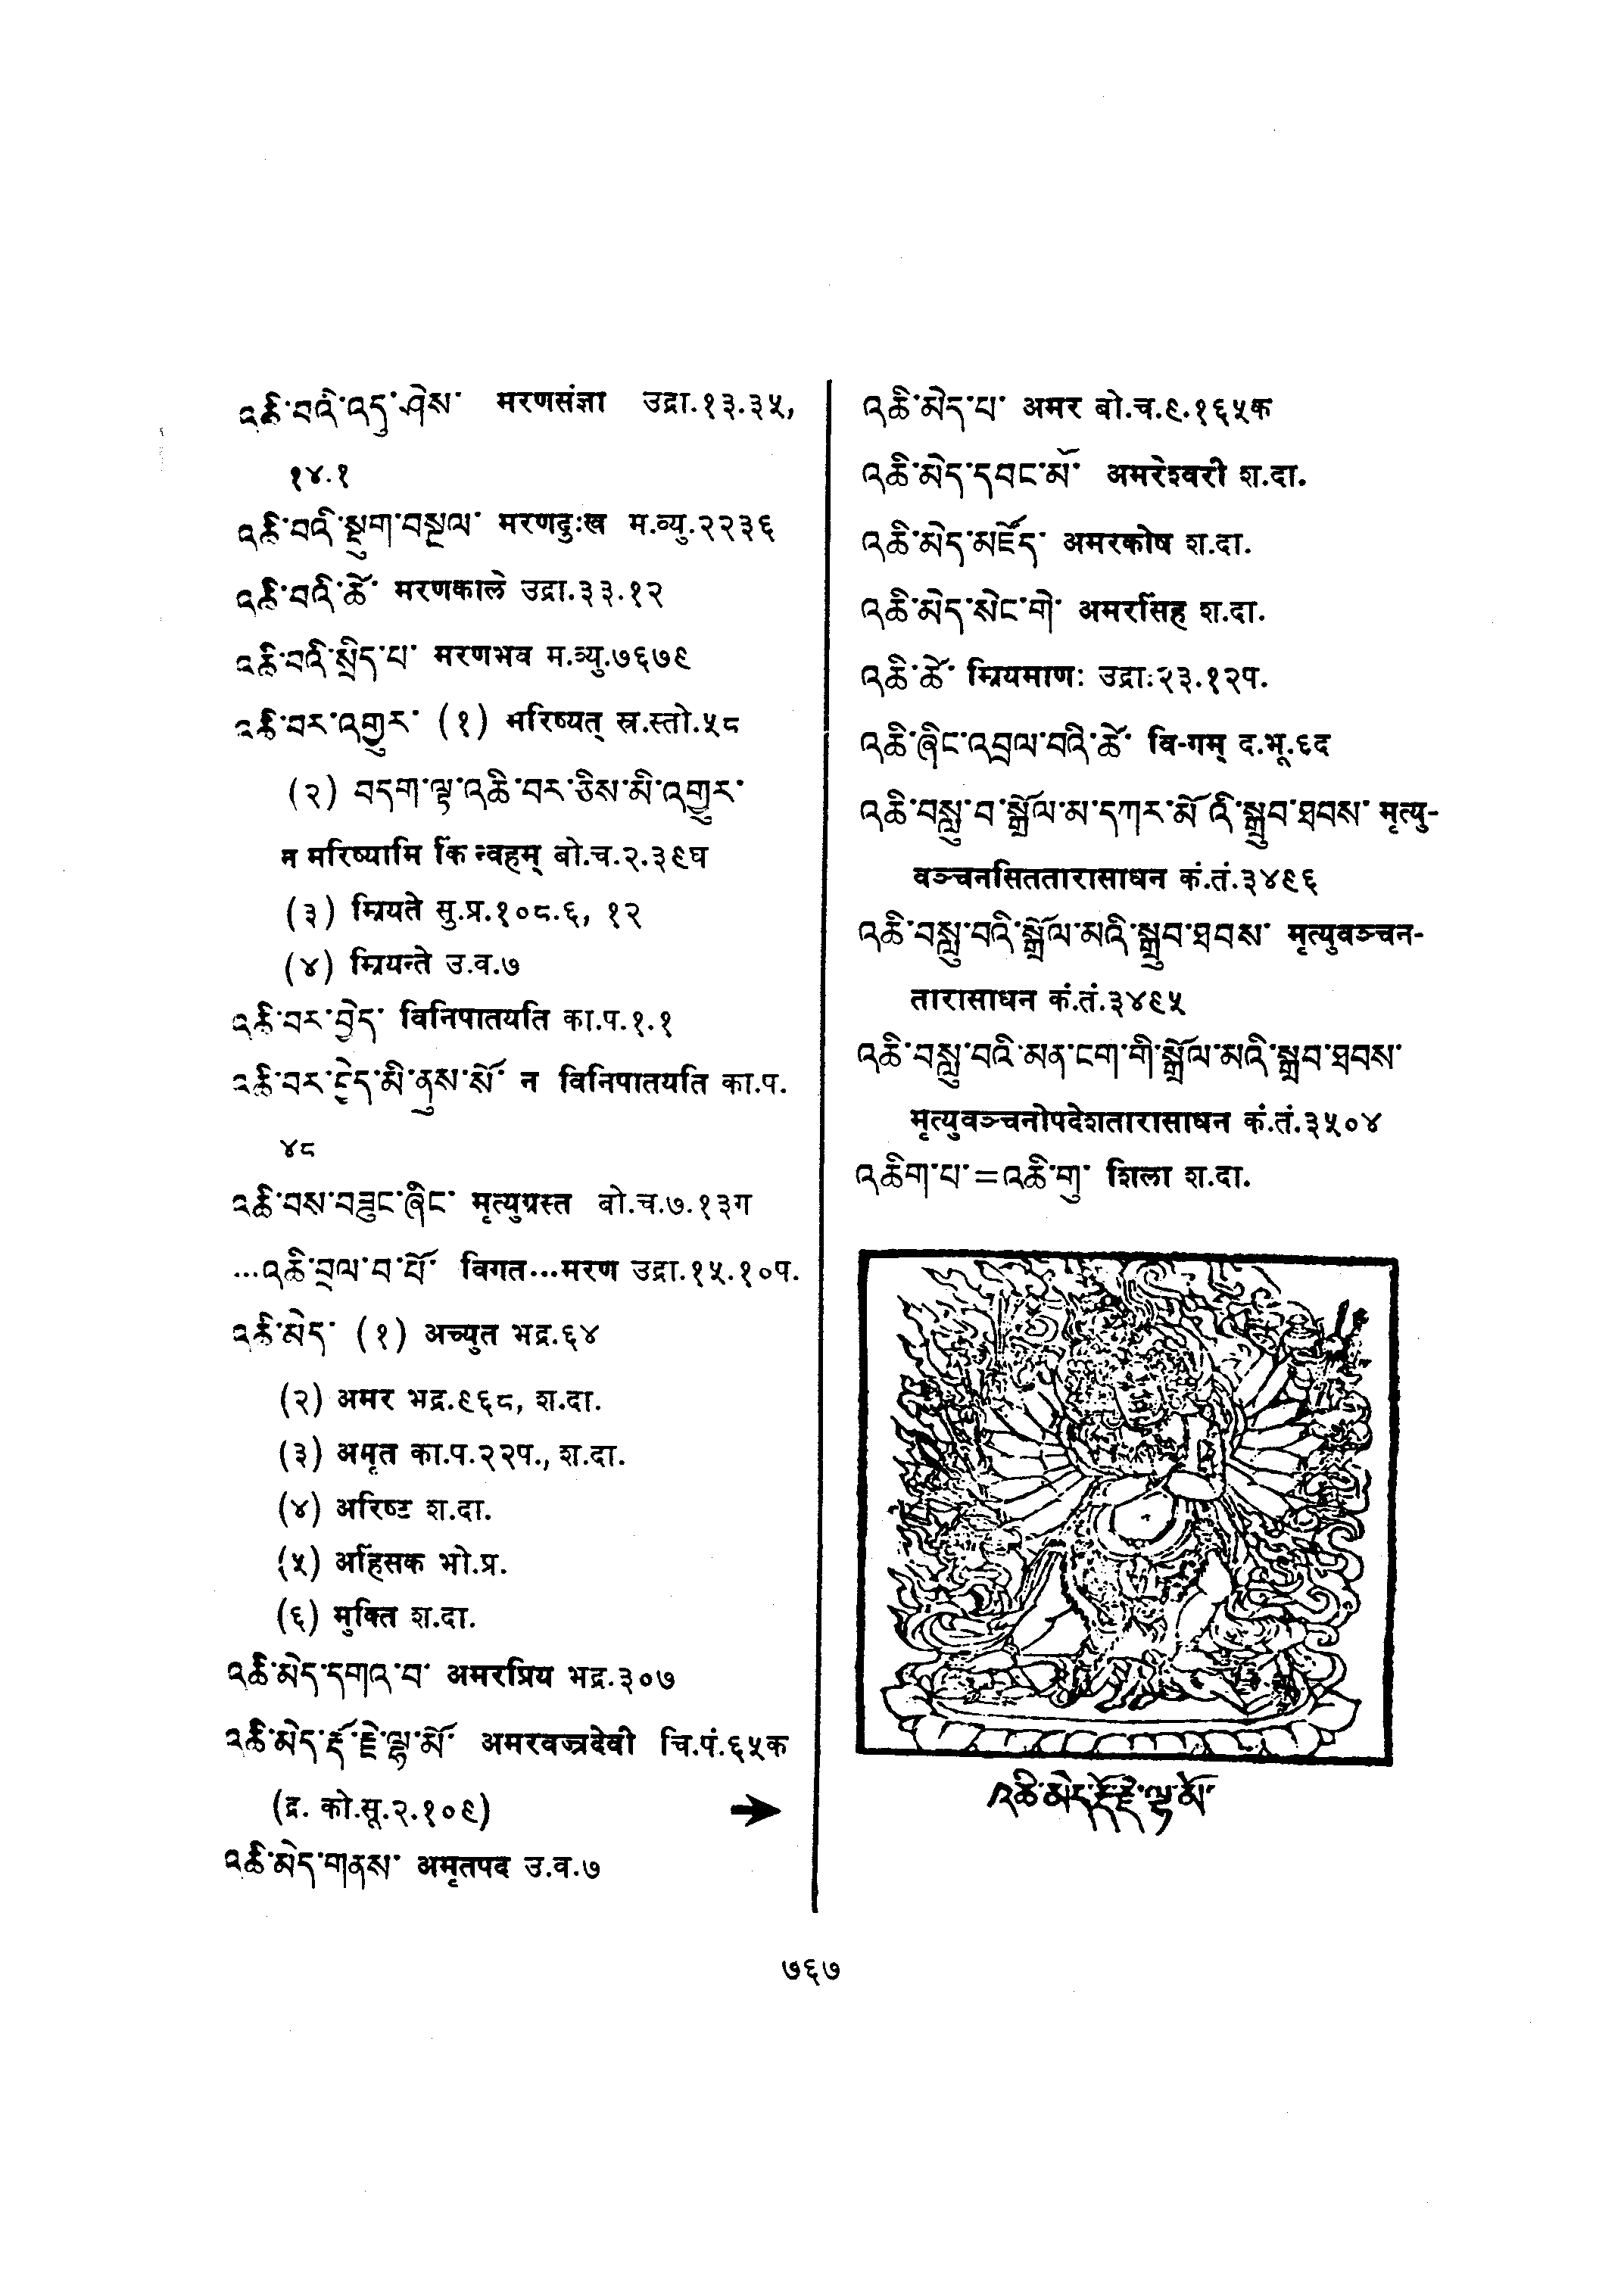 འཆི་བའི་འདུ་ཤེས་ मरणसंज्ञा उद्रा.१३.३५,
१४.१
འཆི་བའི་སྡུག་བསྔལ་ मरणदुःख म.व्यु.२२३६
འཆི་བའི་ཚེ་ मरणकाले उद्रा.३३.१२
འཆི་བའི་སྲིད་པ་ मरणभव म.व्यु.७६७९
འཆི་བར་འགྱུར་ (१) मरिष्यत् स्र.स्तो.५८
(२) བདག་ལྟ་འཆི་བར་ཅིས་མི་འགྱུར་
न मरिष्यामि किं न्वहम् बो.च.२.३९घ
(३) म्रियते सु.प्र.१०८.६, १२
(४) म्रियन्ते उ.व.७
འཆི་བར་བྱེད་ विनिपातयति का.प.१.१
འཆི་བར་བྱེད་མི་ནུས་སོ་ न विनिपातयति का.प.
४८
འཆི་བས་བཟུང་ཞིང་ मृत्युग्रस्त बो.च.७.१३ग
...འཆི་བྲལ་བ་པོ་ विगत...मरण उद्रा.१५.१०प.
འཆི་མེད་ (१) अच्युत भद्र.६४
(२) अमर भद्र.९६८, श.दा.
(३) अमृत का.प.२२प., श.दा.
(४) अरिष्ट श.दा.
(५) अहिंसक भो.प्र.
(६) मुक्ति श.दा.
འཆི་མེད་དགའ་བ་ अमरप्रिय भद्र.३०७
འཆི་མེད་རྡོ་རྗེ་ལྷ་མོ་ अमरवज्रदेवी चि.पं.६५क
(द्र. को.सू.२.१०९)
འཆི་མེད་གནས་ अमृतपद उ.व.७
འཆི་མེད་པ་ अमर बो.च.९.१६५क
འཆི་མེད་དབང་མོ་ अमरेश्वरी श.दा.
འཆི་མེད་མཛོད་ अमरकोष श.दा.
འཆི་མེད་སེང་གེ་ अमरसिंह श.दा.
འཆི་ཚེ་ म्रियमाणः उद्राः२३.१२प.
འཆི་ཞིང་འབྲལ་བའི་ཚེ་ वि-गम् द.भू.६द
འཆི་བསླུ་བ་སྒྲོལ་མ་དཀར་མོ་འི་སྒྲུབ་ཐབས་ मृत्यु-
वञ्चनसिततारासाधन कं.तं.३४९६
འཆི་བསླུ་བའི་སྒྲོལ་མའི་སྒྲུབ་ཐབས་ मृत्युवञ्चन-
तारासाधन कं.तं.३४९५
འཆི་བསླུ་བའི་མན་ངག་གི་སྒྲོལ་མའི་སྒྲབ་ཐབས་
मृत्युवञ्चनोपदेशतारासाधन कं.तं.३५०४
འཆིག་པ་=འཆི་གུ་ शिला श.दा.
འཆི་མེད་རྡོ་རྗེ་ལྷ་མོ་
७६७